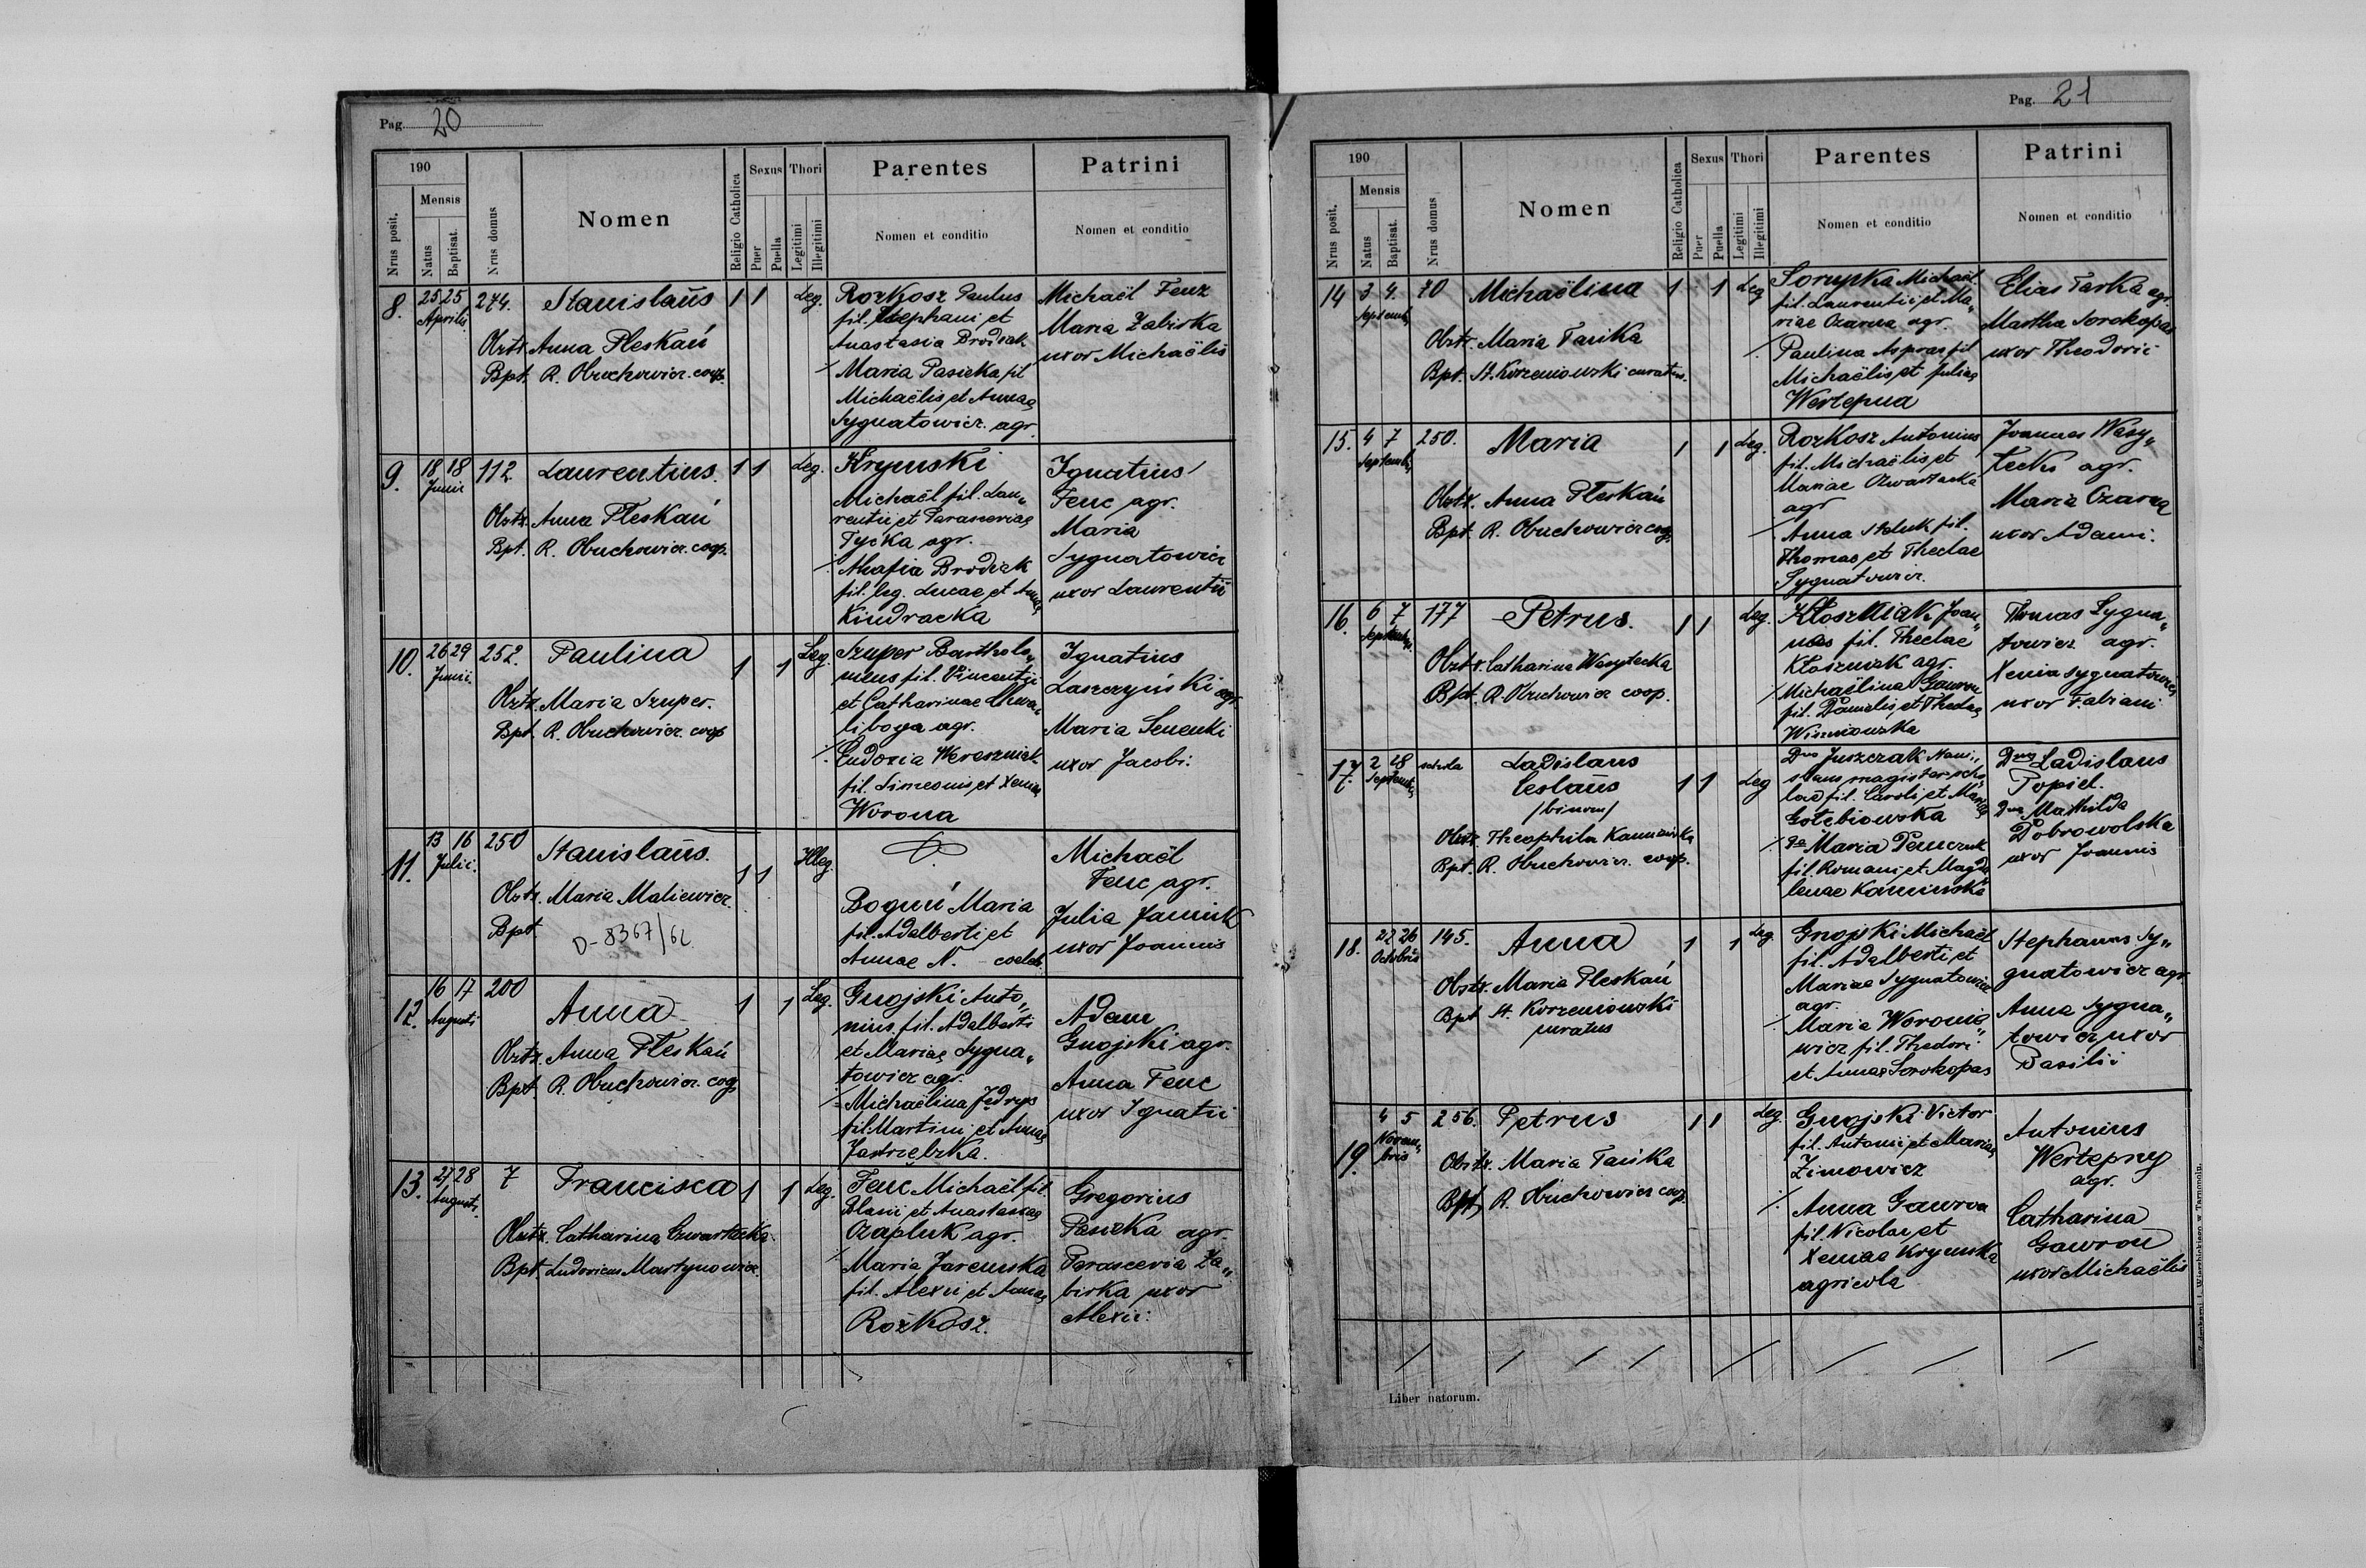 Pag. 20
190
Nrus posit.
Mensis
Natus
Baptisat.
Nrus domus
Nomen
Religio Catholica
Sexus
Puer
Puella
Thori
Legitimi
Illegitimi
Parentes
Nomen et conditio
Patrini
Nomen et conditio
8. 25 25 Aprilis 274. Stanislaus 1 1 Leg.
Obstx. Anna Pleskań
Bpt. R. Obuchowicz. coop.
Rozkosz Paulus
fil. Stephani et
Anastasia Brodziak
Maria Pasieka fil
Michaëlis et Annae
Sygnatowicz. agr.
Michaël Fenz
Maria Zabirka
uxor Michaëlis
9. 18 18 Junii 112. Laurentius. 1 1 Leg.
Obstx. Anna Pleskań
Bpt. R. Obuchowicz. coop.
Krymski
Michaël fil. Lau„
rentii et Parasceviae
Tycka agr.
Ahafia Brodziak
fil. leg. Lucae et Annae
Kindracka
Ignatius
Fenc agr.
Maria
Sygnatowicz
uxor Laurentii
10. 26 29 Junii. 252. Paulina 1 1 Leg.
Obstx. Maria Szuper.
Bpt. R. Obuchowicz. coop
Szuper Bartholo„
meus fil. Vincentii
et Catharinae Chwa„
liboga agr.
Eudoxia Wereszniak
fil. Simeonis et Xeniae
Worona
Ignatius
Laszczyński agr.
Maria Senenki
uxor Jacobi.
11. 13 16 Julii. 250 Stanislaus. 1 1 Illeg.
Obstx. Maria Maliewicz.
Bpt.
D-8367/62
Boguń Maria
fil. Adalberti et
Annae N. coeleb.
Michaël
Fenc agr.
Julia Janiuk
uxor Joannis
12. 16 17 Augusti 200 Anna 1 1 Leg.
Obstx. Anna Pleskań
Bpt. R. Obuchowicz. coop
Gnojski Anto„
nius fil. Adalberti
et Mariae Sygna„
towicz agr.
Michaëlina Jędrys
fil. Martini et Annae
Jastrzebska.
Adam
Gnojski agr.
Anna Fenc
uxor Ignatii
13. 27 28 Augusti. 7 Francisca 1 1 Leg.
Obstx. Catharina Czwartacka.
Bpt. Ludovicus Martynowicz.
Fenc Michaël fil.
Blasii et Anastasiae
Czapluk agr.
Maria Jaremska
fil. Alexii et Annae
Rozkosz.
Gregorius
Pasieka agr.
Parascevia Za„
birka uxor
Alexii.
Pag. 21
190
Nrus posit.
Mensis
Natus
Baptisat.
Nrus domus
Nomen
Religio Catholica
Sexus
Puer
Puella
Thori
Legitimi
Illegitimi
Parentes
Nomen et conditio
Patrini
Nomen et conditio
14 3 4. Septemb. 70 Michaëlina 1 1 Leg
Obstx. Maria Tasika
Bpt. St. Korzeniowski curatus.
Sorupka Michaël
fil. Laurentii et Ma„
riae Czarna agr.
Paulina fil
Michaëlis et Juliae
Wertepna
Elias Tarka agr.
Martha Sorokopas
uxor Theodorii
15. 4 7 Septemb. 250. Maria 1 1 Leg.
Obstx. Anna Pleskań
Bpt. R. Obuchowicz coop.
Rozkosz Antonius
fil. Michaëlis et
Mariae Czwartacka
agr
Anna fil.
Thomae et Theclae
Sygnatowicz.
Joannes Wasy„
lecki agr.
Maria Czarna
uxor Adami.
16. 6 7 177 Petrus. 1 1 Leg.
Obstx. Catharina Wasylecka
Bpt. R. Obuchowicz coop.
Kłoszniak Joan„
nes fil. Theclae
Kłoszniak agr.
Michaëlina Gawron
fil. Danielis et Theclae
Wiszniowska
Thomas Sygna„
towicz agr.
Xenia Sygnatowicz
uxor Fabiani
17. 2 28 Septemb. schola Ladislaus 1 1 Leg
Ceslaus
/binom/
Obstx. Theophila Kaminska
Bpt. R. Obuchowicz. coop.
Dnus Juszczak Stani„
slaus magister scho„
lae fil. Caroli et Mariae
Gołebiowska
Da Maria Penczak
fil. Romani et Magda
lenae Kaminska
Dnus Ladislaus
Popiel.
Dna Mathilda
Dobrowolska
uxor Joannis
18. 22 26 Octobris 145. Anna 1 1 Leg.
Obstx. Maria Pleskań
Bpt St. Korzeniowski
curatus
Gnojski Michaël
fil. Adalberti et
Mariae Sygnatowicz
agr.
Maria Worono„
wicz fil. Thedori
et Annae Sorokopas
Stephanus Sy„
gnatowicz agr.
Anna Sygna„
towicz uxor
Basilii
19. 4 5 Novem„ 256. Petrus 1 1 Leg.
bris
Obstx. Maria Tasika
Bpt. R. Obuchowicz coop.
Gnojski Victor
fil. Antonii et Mariae
Zimowicz
Anna Gawron
fil. Nicolai et
Xeniae Krymska
agricola
Antonius
Wertepny
agr.
Catharina
Gawron
uxor Michaëlis
Liber natorum.